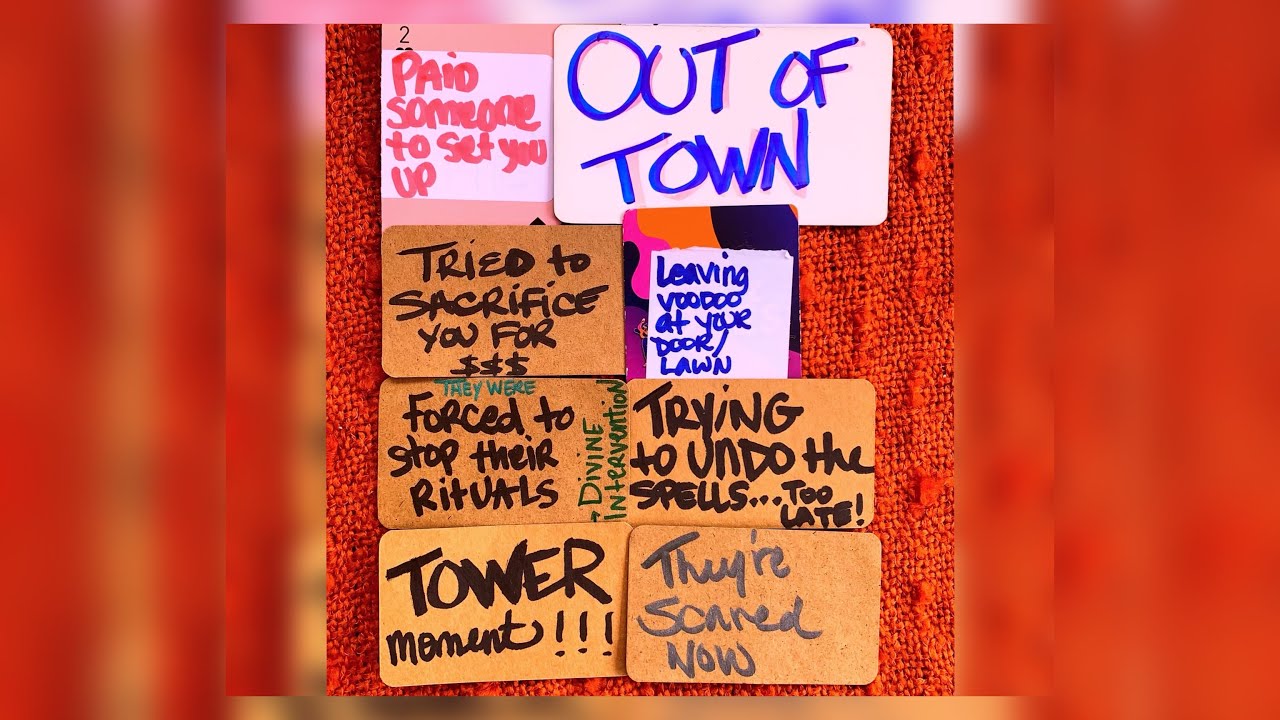 2
PAID
someone
to set you
UP
OUT OF
TOWN
TRIED to
SACRIFICE
YOU FOR
$$$
Leaving
VOODOO
at YOUR
DOOR/
LAWN
THEY WERE
Forced to
stop their
RITUALS
→ DIVINE
INTERVENTION
TRYING
to UNDO the
SPELLS... TOO
LATE!
TOWER
moment!!!
They're
Scared
NOW